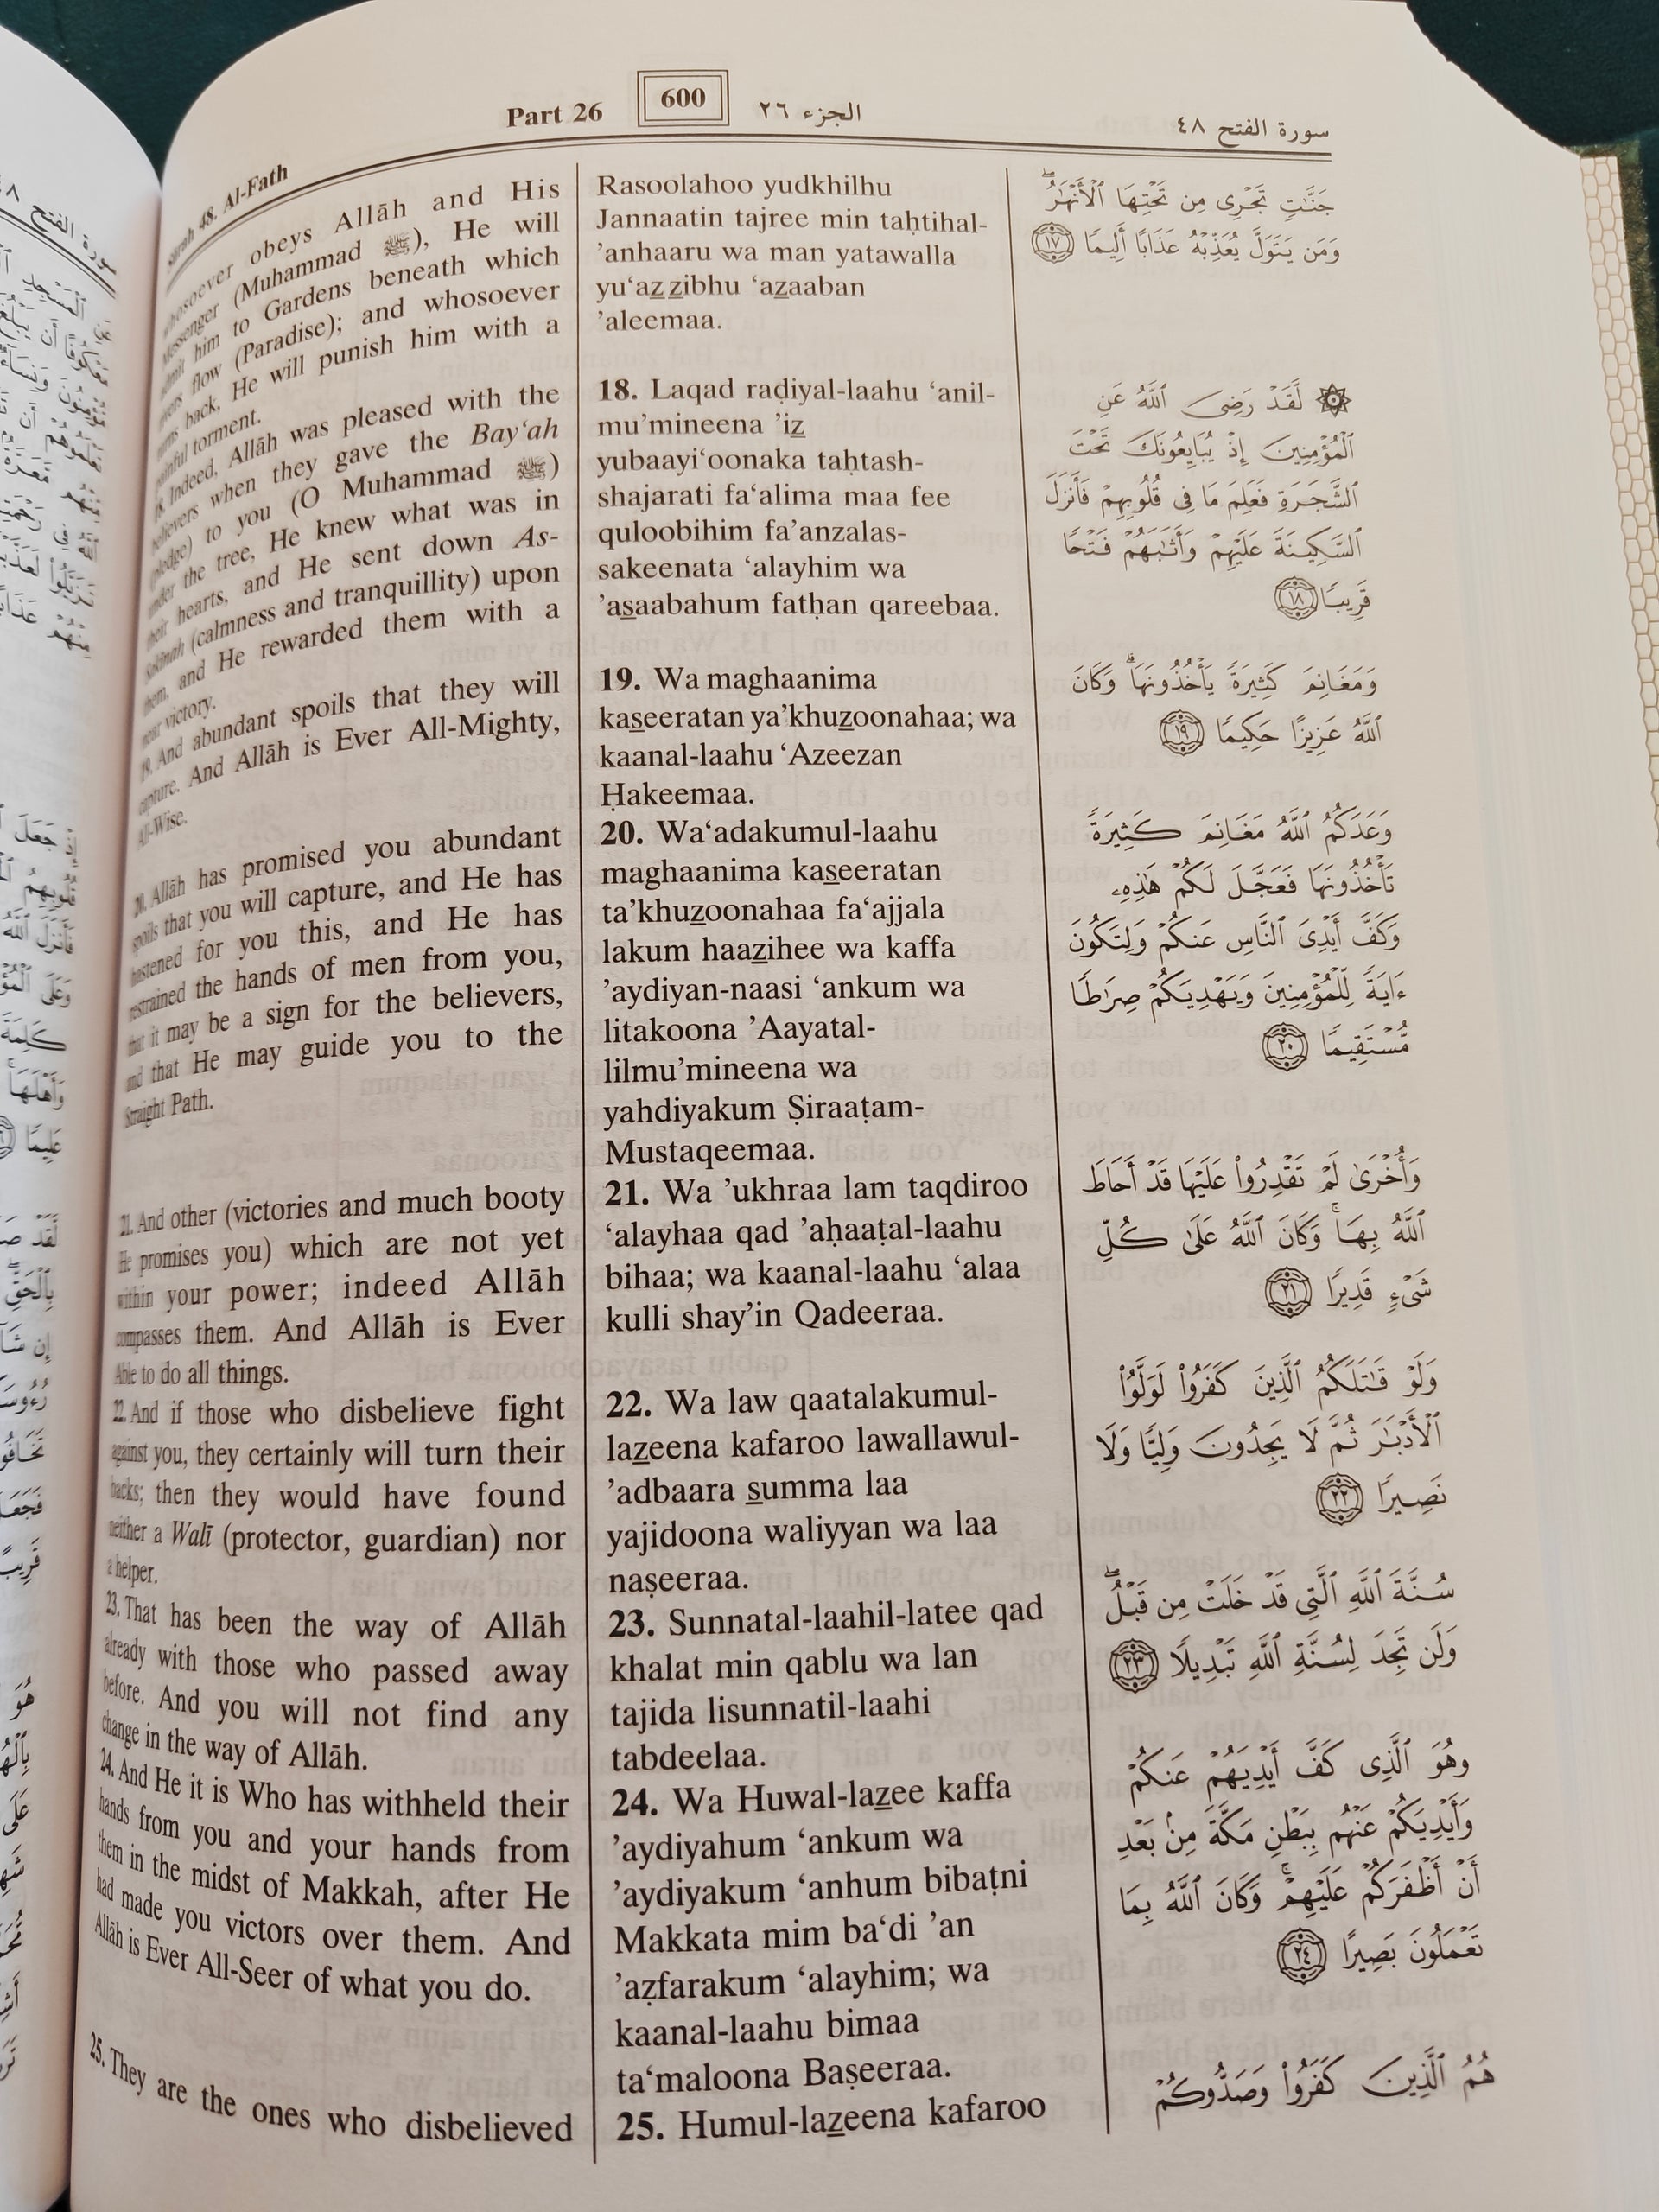 Part 26
600
الجزء ٢٦
سورة الفتح ٤٨
Surah 48. Al-Fath
whosoever obeys Allāh and His
Messenger (Muhammad ﷺ), He will
admit him to Gardens beneath which
rivers flow (Paradise); and whosoever
turns back, He will punish him with a
painful torment.
18. Indeed, Allāh was pleased with the
believers when they gave the Bay‘ah
(pledge) to you (O Muhammad ﷺ)
under the tree, He knew what was in
their hearts, and He sent down As-
Sakīnah (calmness and tranquillity) upon
them, and He rewarded them with a
near victory.
19. And abundant spoils that they will
capture. And Allāh is Ever All-Mighty,
All-Wise.
20. Allāh has promised you abundant
spoils that you will capture, and He has
hastened for you this, and He has
restrained the hands of men from you,
that it may be a sign for the believers,
and that He may guide you to the
Straight Path.
21. And other (victories and much booty
He promises you) which are not yet
within your power; indeed Allāh
compasses them. And Allāh is Ever
Able to do all things.
22. And if those who disbelieve fight
against you, they certainly will turn their
backs; then they would have found
neither a Walī (protector, guardian) nor
a helper.
23. That has been the way of Allāh
already with those who passed away
before. And you will not find any
change in the way of Allāh.
24. And He it is Who has withheld their
hands from you and your hands from
them in the midst of Makkah, after He
had made you victors over them. And
Allāh is Ever All-Seer of what you do.
25. They are the ones who disbelieved
Rasoolahoo yudkhilhu
Jannaatin tajree min taḥtihal-
’anhaaru wa man yatawalla
yu‘azzibhu ‘azaaban
’aleemaa.
18. Laqad raḍiyal-laahu ‘anil-
mu’mineena ’iz
yubaayi‘oonaka taḥtash-
shajarati fa‘alima maa fee
quloobihim fa’anzalas-
sakeenata ‘alayhim wa
’asaabahum fatḥan qareebaa.
19. Wa maghaanima
kaseeratan ya’khuzoonahaa; wa
kaanal-laahu ‘Azeezan
Ḥakeemaa.
20. Wa‘adakumul-laahu
maghaanima kaseeratan
ta’khuzoonahaa fa‘ajjala
lakum haazihee wa kaffa
’aydiyan-naasi ‘ankum wa
litakoona ’Aayatal-
lilmu’mineena wa
yahdiyakum Ṣiraaṭam-
Mustaqeemaa.
21. Wa ’ukhraa lam taqdiroo
‘alayhaa qad ’aḥaaṭal-laahu
bihaa; wa kaanal-laahu ‘alaa
kulli shay’in Qadeeraa.
22. Wa law qaatalakumul-
lazeena kafaroo lawallawul-
’adbaara summa laa
yajidoona waliyyan wa laa
naṣeeraa.
23. Sunnatal-laahil-latee qad
khalat min qablu wa lan
tajida lisunnatil-laahi
tabdeelaa.
24. Wa Huwal-lazee kaffa
’aydiyahum ‘ankum wa
’aydiyakum ‘anhum bibaṭni
Makkata mim ba‘di ’an
’aẓfarakum ‘alayhim; wa
kaanal-laahu bimaa
ta‘maloona Baṣeeraa.
25. Humul-lazeena kafaroo
جَنَّٰتٍ تَجْرِى مِن تَحْتِهَا ٱلْأَنْهَٰرُ ۖ
وَمَن يَتَوَلَّ يُعَذِّبْهُ عَذَابًا أَلِيمًا ١٧
۞ لَّقَدْ رَضِىَ ٱللَّهُ عَنِ
ٱلْمُؤْمِنِينَ إِذْ يُبَايِعُونَكَ تَحْتَ
ٱلشَّجَرَةِ فَعَلِمَ مَا فِى قُلُوبِهِمْ فَأَنزَلَ
ٱلسَّكِينَةَ عَلَيْهِمْ وَأَثَٰبَهُمْ فَتْحًا
قَرِيبًا ١٨
وَمَغَانِمَ كَثِيرَةً يَأْخُذُونَهَا ۗ وَكَانَ
ٱللَّهُ عَزِيزًا حَكِيمًا ١٩
وَعَدَكُمُ ٱللَّهُ مَغَانِمَ كَثِيرَةً
تَأْخُذُونَهَا فَعَجَّلَ لَكُمْ هَٰذِهِۦ
وَكَفَّ أَيْدِىَ ٱلنَّاسِ عَنكُمْ وَلِتَكُونَ
ءَايَةً لِّلْمُؤْمِنِينَ وَيَهْدِيَكُمْ صِرَٰطًا
مُّسْتَقِيمًا ٢٠
وَأُخْرَىٰ لَمْ تَقْدِرُوا۟ عَلَيْهَا قَدْ أَحَاطَ
ٱللَّهُ بِهَا ۚ وَكَانَ ٱللَّهُ عَلَىٰ كُلِّ
شَىْءٍ قَدِيرًا ٢١
وَلَوْ قَٰتَلَكُمُ ٱلَّذِينَ كَفَرُوا۟ لَوَلَّوُا۟
ٱلْأَدْبَٰرَ ثُمَّ لَا يَجِدُونَ وَلِيًّا وَلَا
نَصِيرًا ٢٢
سُنَّةَ ٱللَّهِ ٱلَّتِى قَدْ خَلَتْ مِن قَبْلُ ۖ
وَلَن تَجِدَ لِسُنَّةِ ٱللَّهِ تَبْدِيلًا ٢٣
وَهُوَ ٱلَّذِى كَفَّ أَيْدِيَهُمْ عَنكُمْ
وَأَيْدِيَكُمْ عَنْهُم بِبَطْنِ مَكَّةَ مِنۢ بَعْدِ
أَنْ أَظْفَرَكُمْ عَلَيْهِمْ ۚ وَكَانَ ٱللَّهُ بِمَا
تَعْمَلُونَ بَصِيرًا ٢٤
هُمُ ٱلَّذِينَ كَفَرُوا۟ وَصَدُّوكُمْ